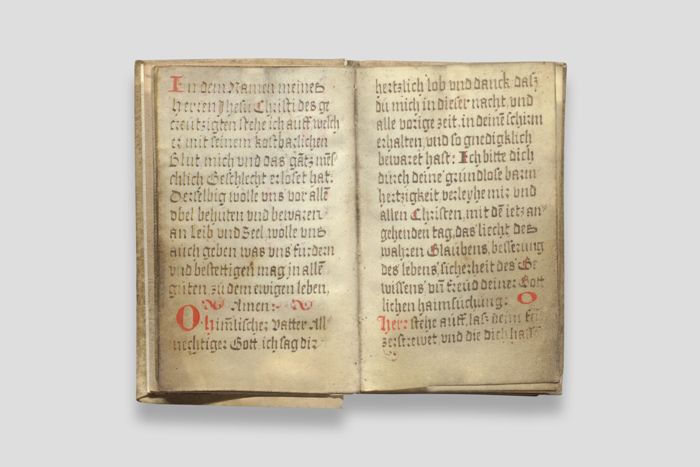 In dem Namen meines
Herren Jhesu Christi des ge
creutzigten stehe ich auff, welch
er mit seinem kostbarlichen
Blut mich vnd das gātz mēs
chlich Geschlecht erlöset hat.
Derselbig wölle vns vor allē
vbel behüten vnd bewaren
an Leib vnd Seel, wölle vns
auch geben was vns fürdern
vnd bestettigen mag jn allē
güten, zu dem ewigen leben,
Amen:
O himlischer Vatter All
mechtiger Gott, ich sag dir
hertzlich lob vnd danck, dasz
du mich in dieser nacht, vnd
alle vorige zeit, in deinē schirm
erhalten, vnd so gnedigklich
bewaret hast: Ich bitte dich
durch deine grundlose barm
hertzigkeit verleyhe mir vnd
allen Christen, mit dē ietz an
gehenden tag, das liecht des
wahren Glaubens, besserung
des lebens sicherheit des Ge
wissens vn̄ freüd deiner Gott
lichen haimsuchung: O
Herr stehe auff, lasz dein
zerstrewet, vnd die dich